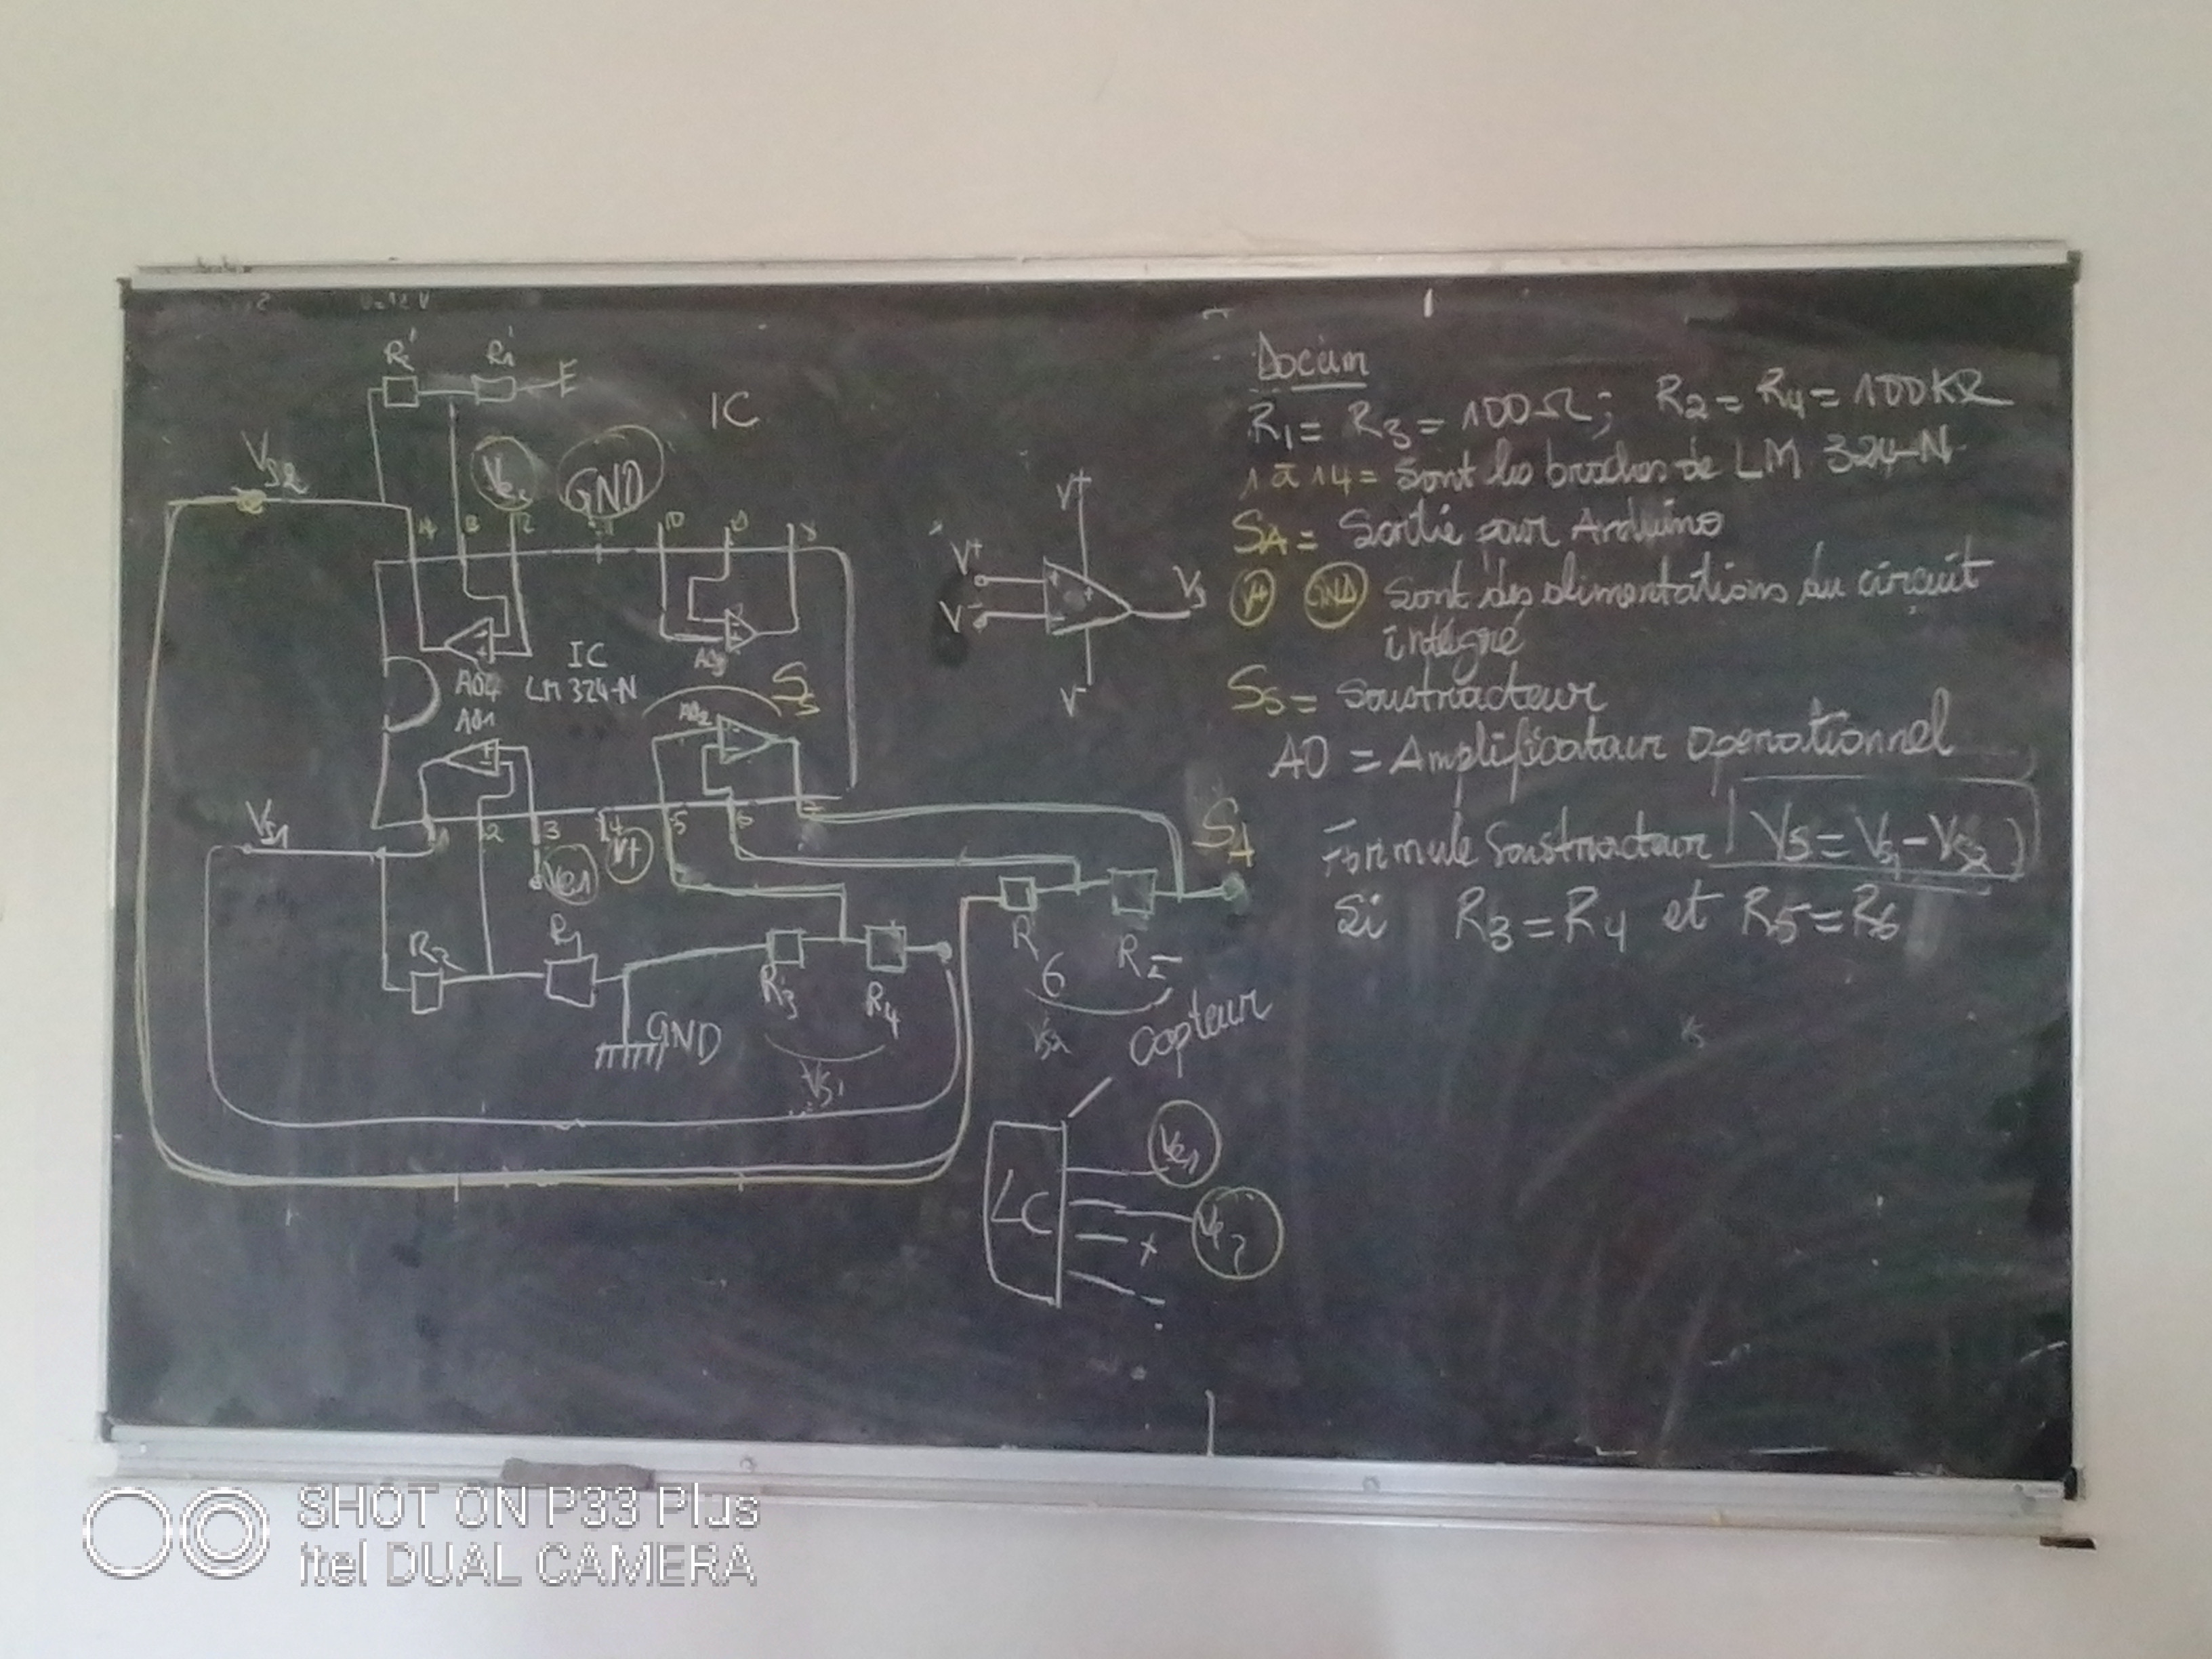 V=12V
R2' R1' E
IC
VS2
Ve2 GND
14 13 12 11 10 9 8
V+
V+
V-
VS
V-
AO4 AO3
IC
LM 324-N
AO1 AO2 SS
1 2 3 4 5 6 7
VS1
Ve1 V+
SA
R2 R1
R3 R4
R6 R5
GND
VS1
VS2
Capteur
LC
Ve1
Ve2
+
-
R1 = R3 = 100Ω ; R2 = R4 = 100KΩ
1 à 14 = Sont les broches de LM 324-N
SA = Sortie pour Arduino
V+ GND Sont des alimentations du circuit
intégré
SS = Soustracteur
AO = Amplificateur operationnel
Formule Soustracteur VS = VS1 - VS2
Si R3 = R4 et R5 = R6
VS
SHOT ON P33 Plus
itel DUAL CAMERA